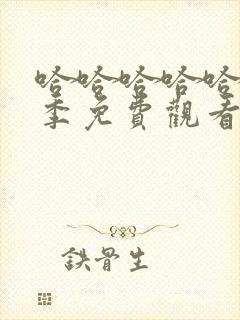 哈哈哈哈哈
季免費觀看
鉄骨生